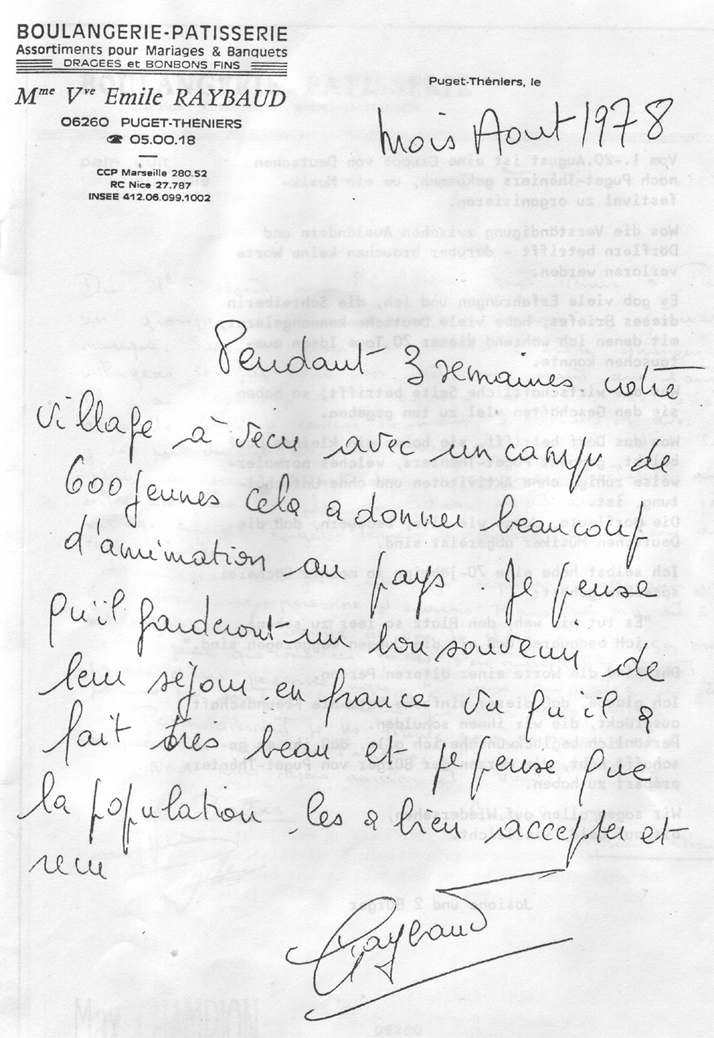 BOULANGERIE-PATISSERIE
Assortiments pour Mariages & Banquets
DRAGEES et BONBONS FINS
Mme Vve Emile RAYBAUD
06260 PUGET-THÉNIERS
☎ 05.00.18
CCP Marseille 280.52
RC Nice 27.787
INSEE 412.06.099.1002
Puget-Théniers, le
Mois Aout 1978
Pendant 3 semaines notre
village à vecu avec un camp de
600 jeunes Cela a donner beaucoup
d'animation au pays. Je pense
qu'il garderont un bon souvenir de
leur séjour en france vu qu'il a
fait très beau et je pense que
la population les a bien accepter et
recu
Raybaud